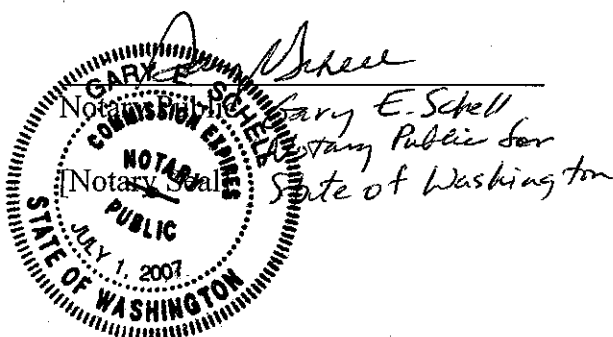 Gary E Schell
Notary Public
Gary E. Schell
Notary Public for
State of Washington
[Notary Seal]
GARY E. SCHELL
COMMISSION EXPIRES
NOTARY
PUBLIC
JULY 1, 2007
STATE OF WASHINGTON